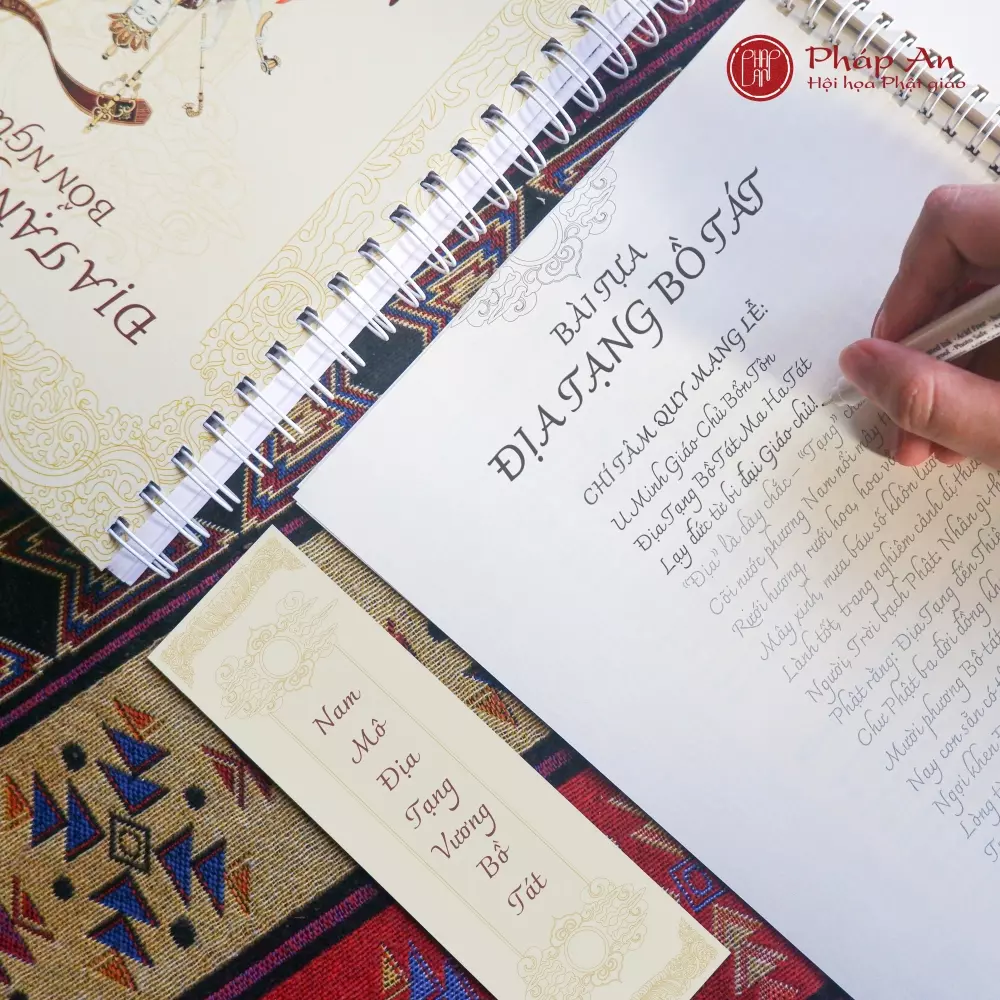 PHÁP AN
Pháp An
Hội họa Phật giáo
ĐỊA TẠN
BỔN NGU
BÀI TỰA
ĐỊA TẠNG BỒ TÁT
CHÍ TÂM QUY MẠNG LỄ:
U Minh Giáo Chủ Bổn Tôn
Địa Tạng Bồ Tát Ma Ha Tát
Lạy đức từ bi đại Giáo chủ!
"Địa" là dày chắc – "Tạng" ch
Cõi nước phương Nam nổi mây
Rưới hương, rưới hoa, hoa v
Mây xinh, mưa báu số khôn lườ
Lành tốt, trang nghiêm cảnh dị thườ
Người, Trời bạch Phật: Nhân gì
Phật rằng: Địa Tạng đến Thiê
Chư Phật ba đời đồng kh
Mười phương Bồ tát
Nay con sẵn có
Ngợi khen
Lòng t
Nam
Mô
Địa
Tạng
Vương
Bồ
Tát